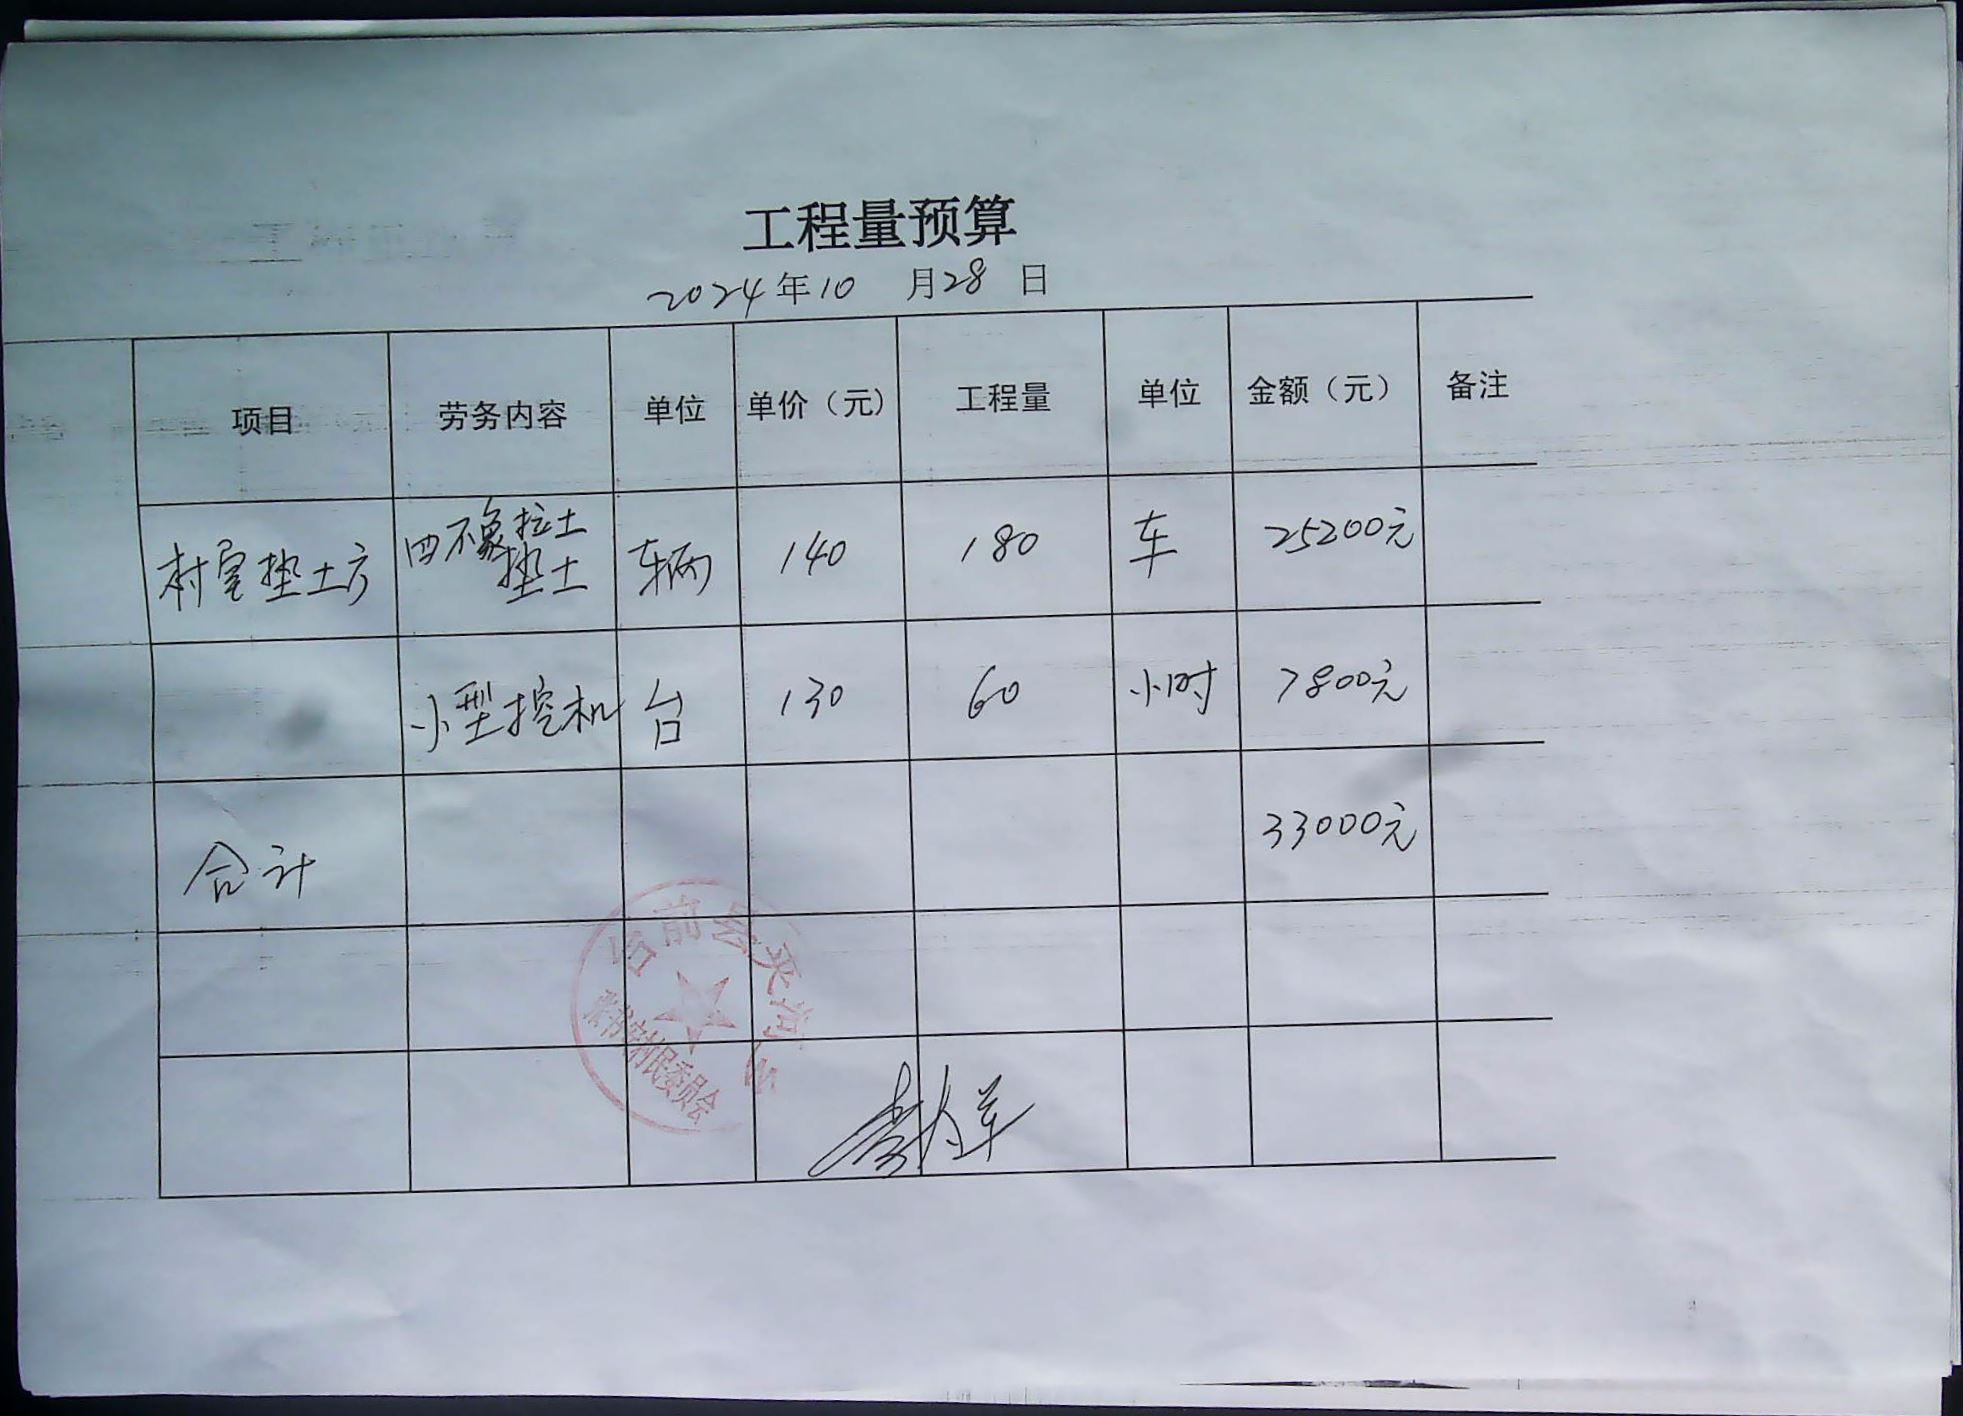 工程量预算
2024年10月28日
项目 劳务内容 单位 单价（元） 工程量 单位 金额（元） 备注
村室垫土方 四不象拉土垫土 车辆 140 180 车 25200元
小型挖机 台 130 60 小时 7800元
合计 33000元
台前县夹河乡
村民委员会